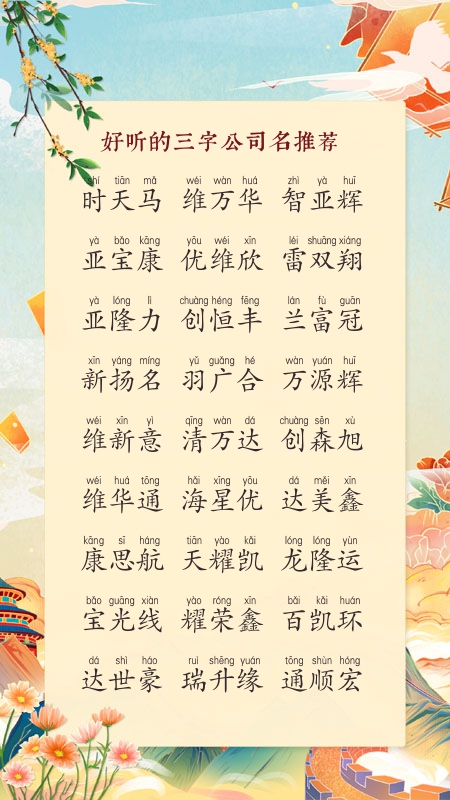 好听的三字公司名推荐
shí tiān mǎ wéi wàn huá zhì yà huī
时天马 维万华 智亚辉
yà bǎo kāng yōu wéi xīn léi shuāng xiáng
亚宝康 优维欣 雷双翔
yà lóng lì chuàng héng fēng lán fù guān
亚隆力 创恒丰 兰富冠
xīn yáng míng yǔ guǎng hé wàn yuán huī
新扬名 羽广合 万源辉
wéi xīn yì qīng wàn dá chuàng sēn xù
维新意 清万达 创森旭
wéi huá tōng hǎi xīng yōu dá měi xīn
维华通 海星优 达美鑫
kāng sī háng tiān yào kǎi lóng lóng yùn
康思航 天耀凯 龙隆运
bǎo guāng xiàn yào róng xīn bǎi kǎi huán
宝光线 耀荣鑫 百凯环
dá shì háo ruì shēng yuán tōng shùn hóng
达世豪 瑞升缘 通顺宏